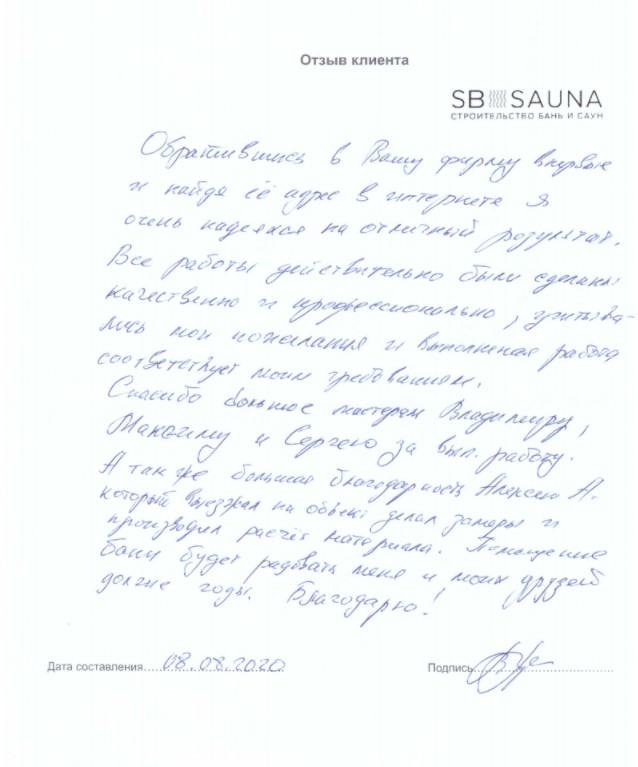 Отзыв клиента
SB SAUNA
СТРОИТЕЛЬСТВО БАНЬ И САУН
Обратившись в Вашу фирму впервые
и найдя её адрес в интернете я
очень надеялся на отличный результат.
Все работы действительно были сделаны
качественно и профессионально, учитыва-
лись мои пожелания и выполненая работа
соответствует моим требованиям.
Спасибо большое мастерам Владимиру,
Максиму и Сергею за вып. работу.
А так же большая благодарность Алексею А.
который выезжал на объект делал замеры и
производил расчёт материала. Помещение
бани будет радовать меня и моих друзей
долгие годы. Благодарю!
Дата составления 08.08.2020 Подпись